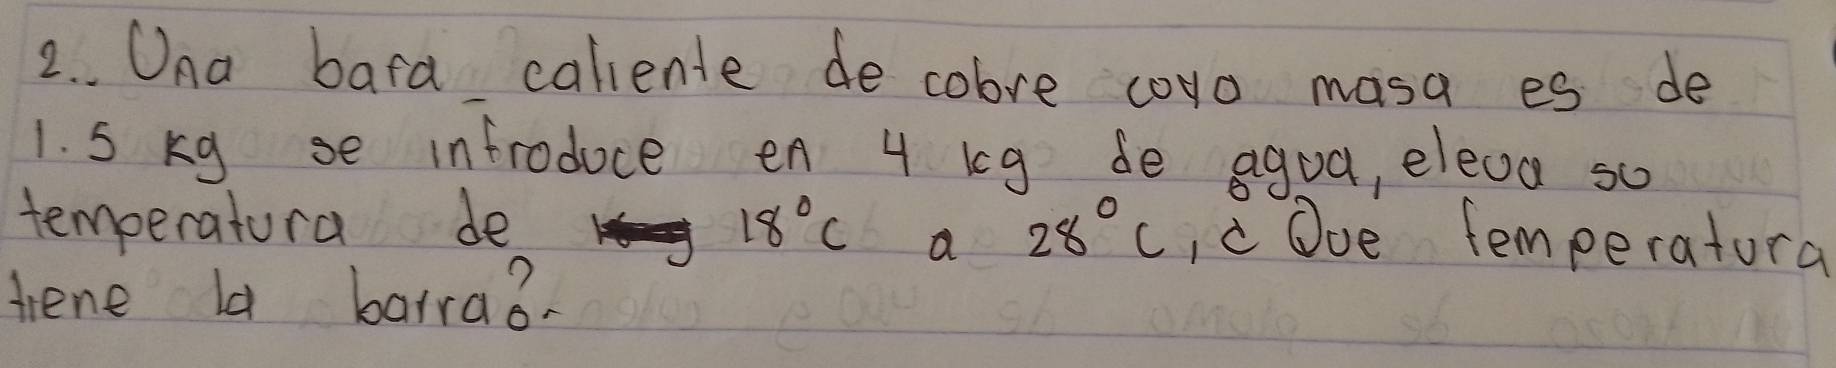 2.. Una bara caliente de cobre coyo masa es de
1.5 kg se introduce en 4 kg de agua, eleva su
temperatura de 18°C a 28°C, ¿Que temperatura
tiene la barra?.